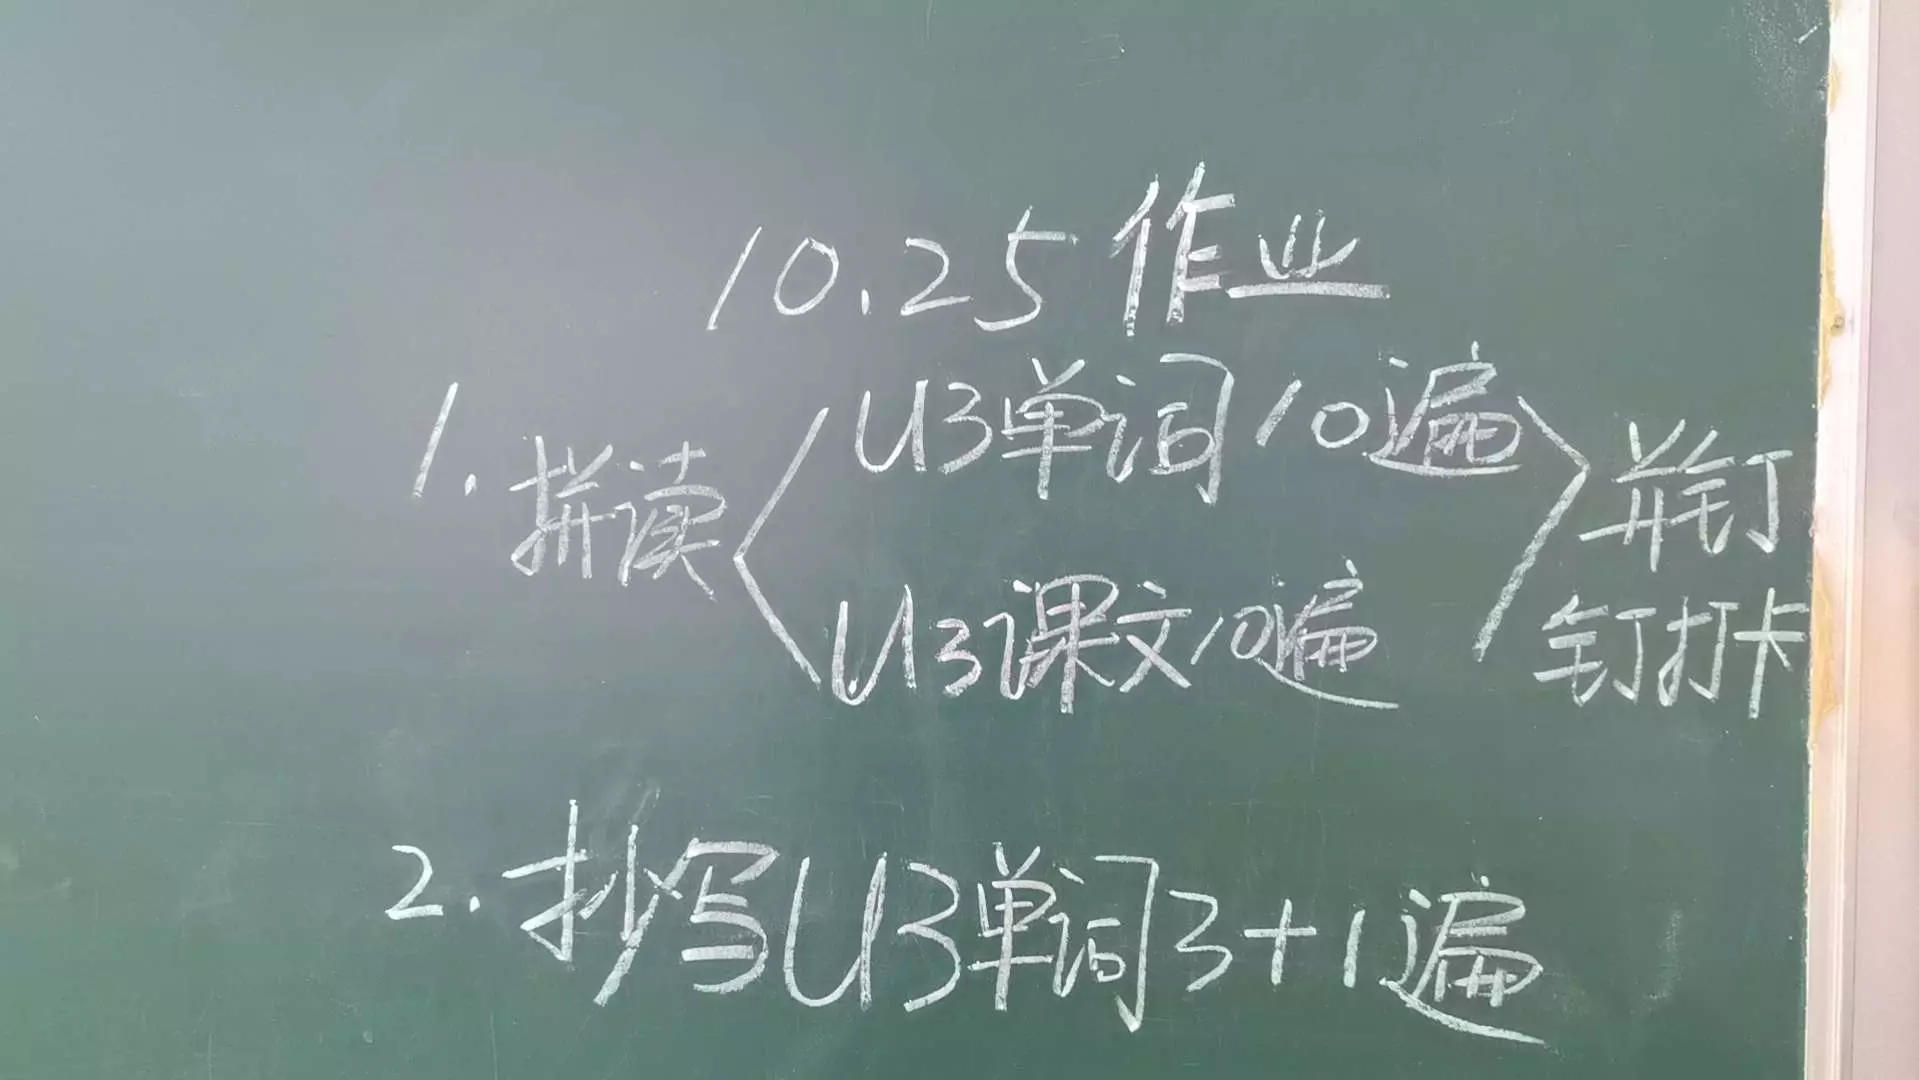 10.25作业
1.拼读
U3单词10遍
U3课文10遍
并钉
钉打卡
2.抄写U3单词3+1遍